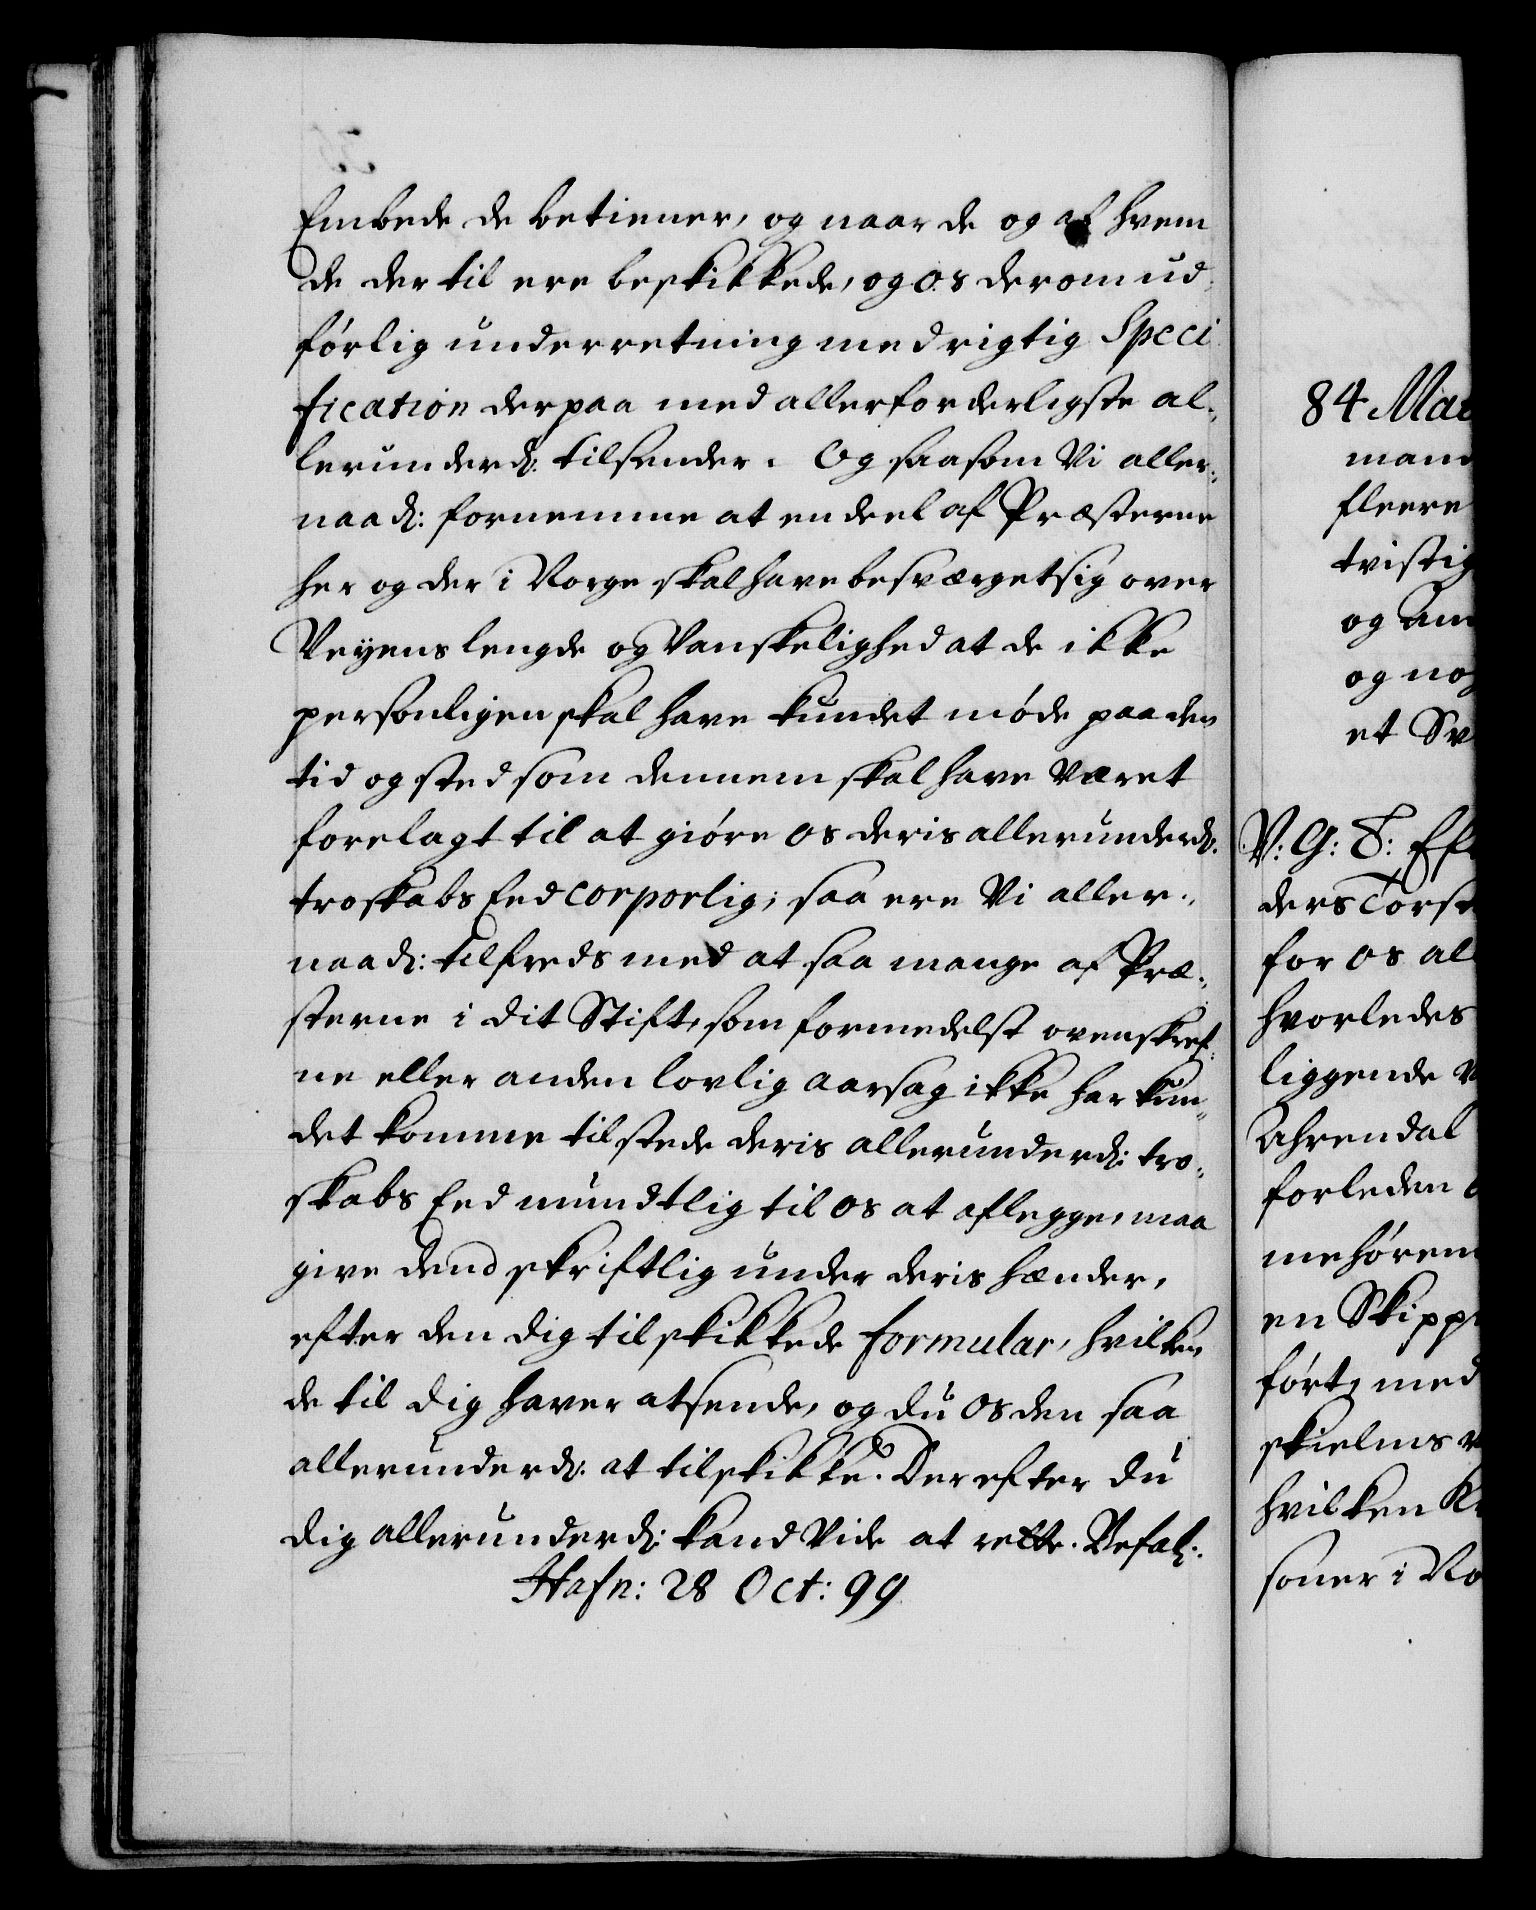 Embede de betiener, og naar de og af hvem
de der til ere beskikkede, og os derom ud,
førlig underretning med rigtig Speci
fication derpaa med allerforderligste al,
lerunderd: tilsender. Og saasom Vi aller,
naad: fornemme at en deel af Præsterne
her og der i Norge skal have besværget sig over
Veyens lengde og Vanskelighed at de ikke
personligen skal have kundet møde paa den
tid og sted som dennem skal have været
forelagt til at giøre os deris allerunderd:
troskabs Eed corporlig; saa ere Vi aller,
naad: tilfreds med at saa mange af Præ,
sterne i dit Stift, som formedelst ovenskref,
ne eller anden lovlig aarsag ikke har kun,
det komme tilstede deris allerunderd: tro,
skabs Eed mundtlig til os at aflegge, maa
give dend skriftlig under deris hænder,
efter den dig tilskikkede formular, hvilken
de til dig haver at sende, og du os den saa
allerunderd: at tilskikke. Der efter du
dig allerunderd: kand Vide at rette. Befal:
Hafn: 28 Oct: 99
84 Mar
man
fleere
tvistig
og Am
og nog
et Sv
V: G: T: Eft
ders Torst
for os al
hvorledes
liggende
Ahrendal
forleden
mehøren
en Skipp
ført, med
skielms
hvilken K
soner i No